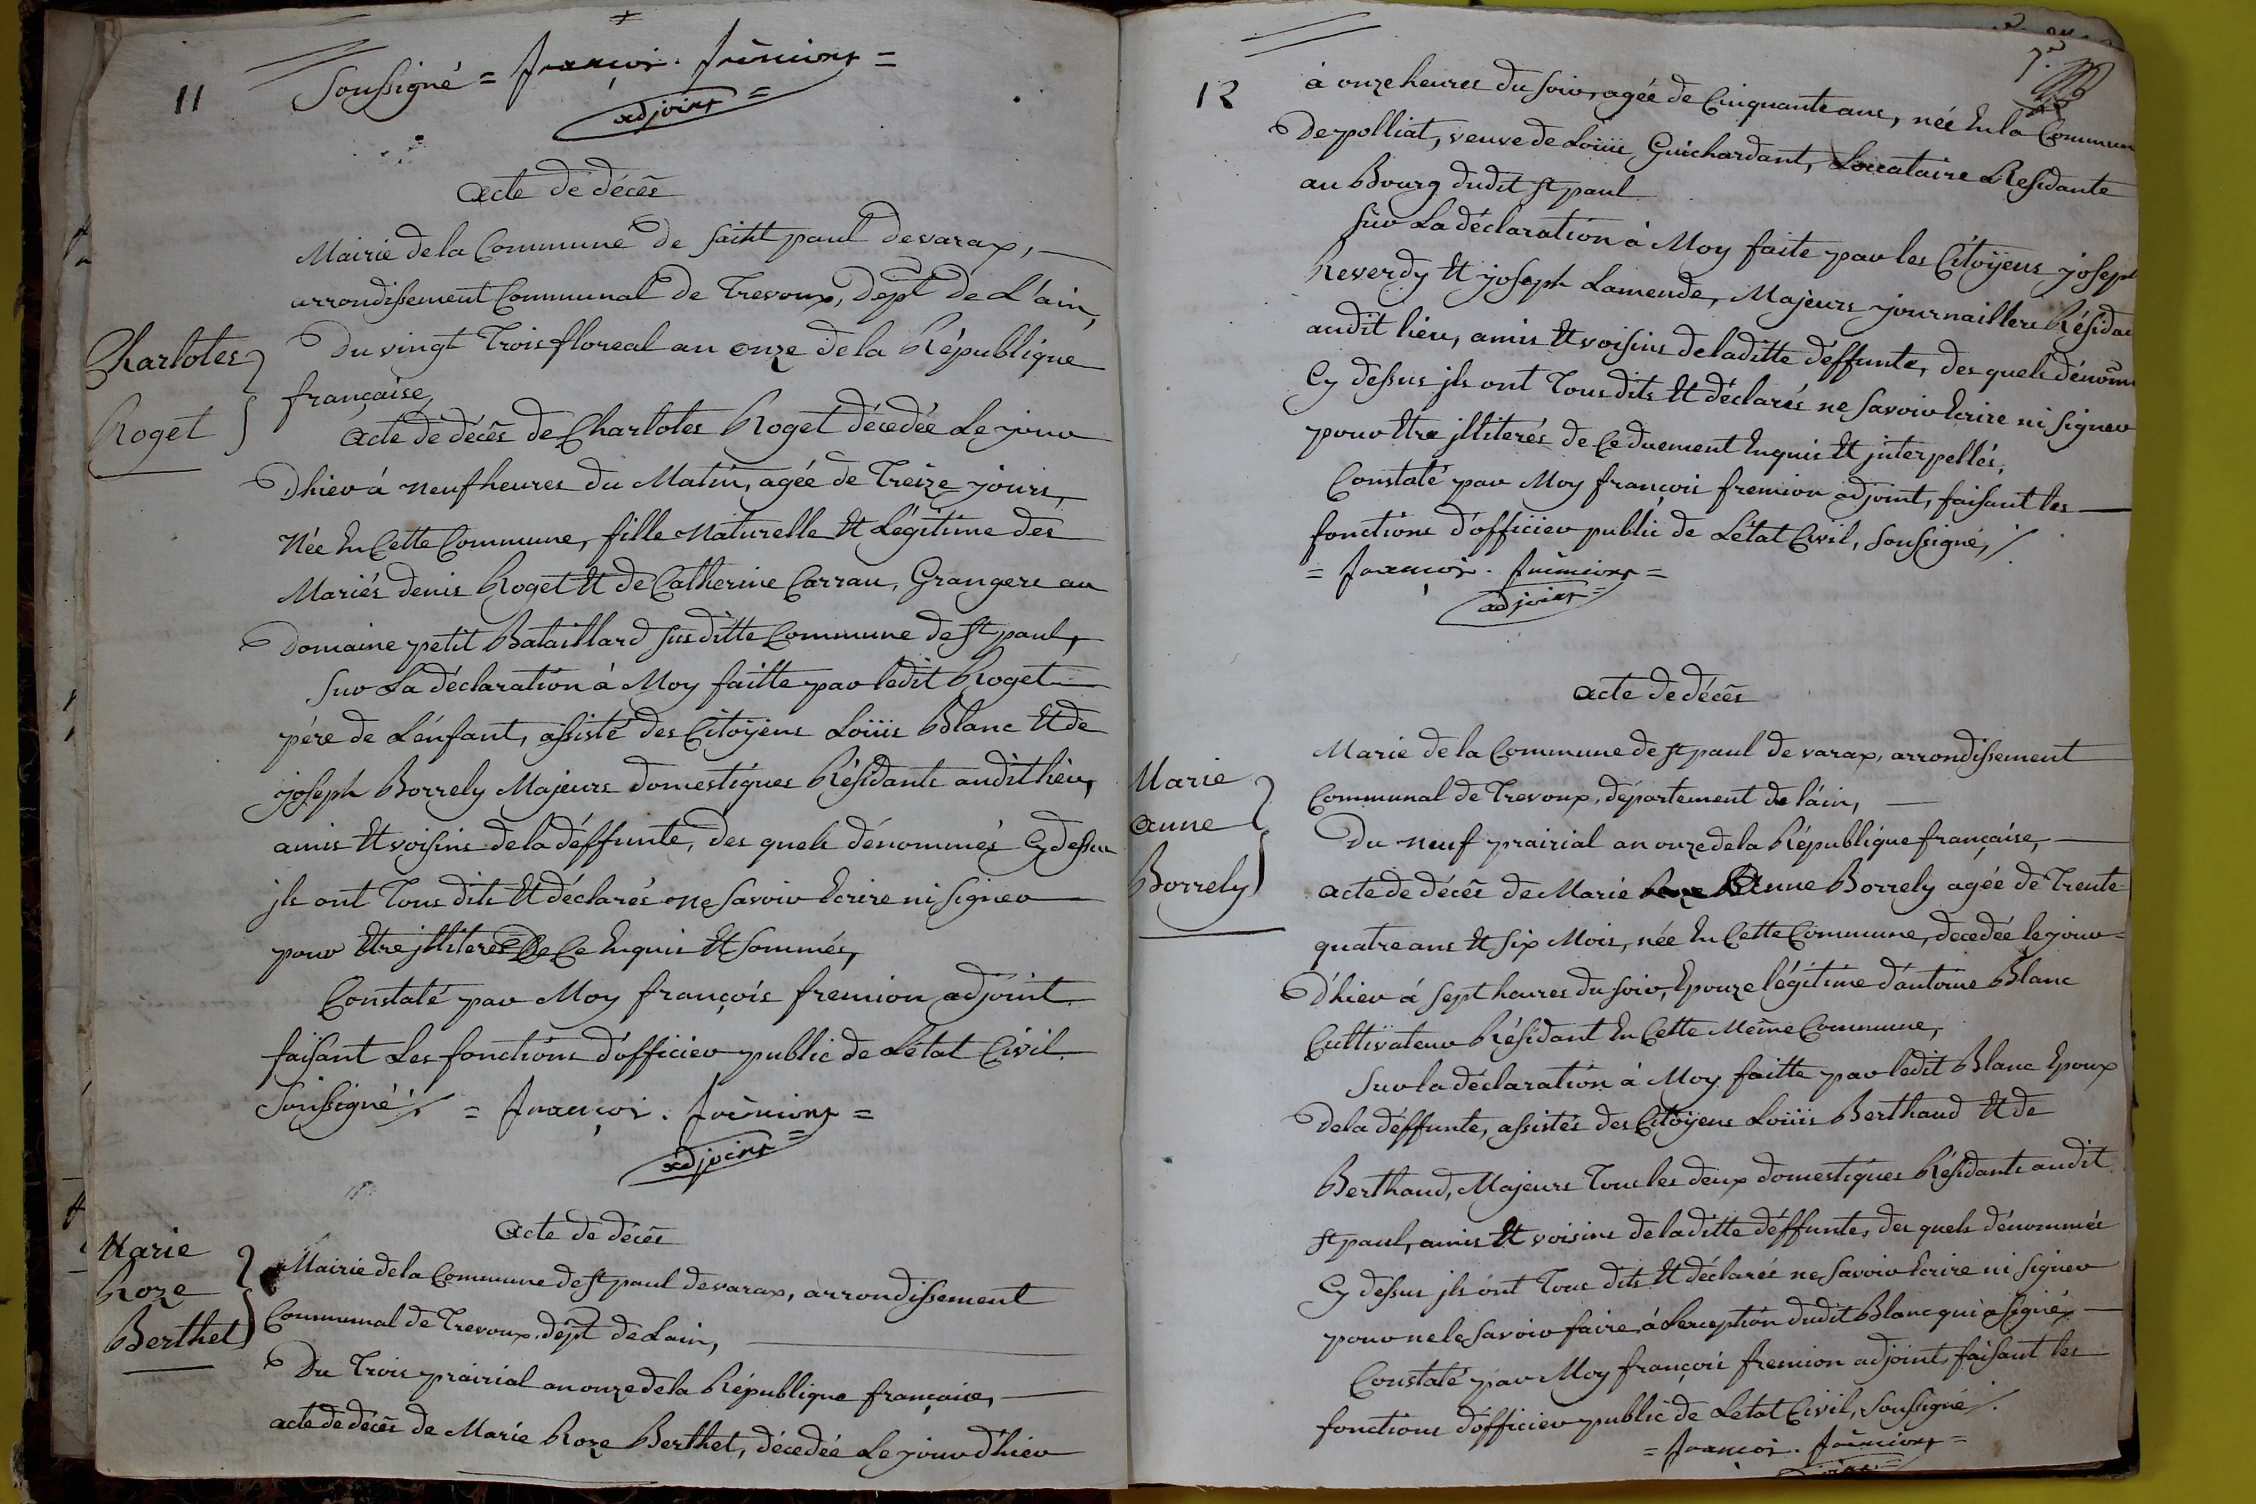 11
Soussigné = françois. frémion =
adjoint =
Acte de décès
Mairie de la Commune de Saint paul de varax,
arrondissement Communal de Trevoux, dept de L'ain,
Du vingt Trois floreal an onze de la République
française,
Charlotes
Roget
Acte de décès de Charlotes Roget décédée Le jour
d'hier á neuf heures du Matin, agée de Treize jours,
Née En Cette Commune, fille Naturelle Et Légitime des
Mariés denis Roget Et de Catherine Carrau, Grangers au
Domaine petit Bataillard susditte Commune de St paul,
Sur La déclaration à Moy faitte par ledit Roget
pére de L'énfant, assisté des Citöyens Loüis Blanc Et de
joseph Borrely Majeurs domestiques Résidants audit lieu,
amis Et voisins de la déffunte, des quels dénommés Cy dessus
jls ont Tous dits Et déclarés ne savoir Ecrire ni signer
pour Etre jlliterés De Ce Enquis Et sommés,
Constaté par Moy françois fremion adjoint
faisant Les fonctions d'officier public de L'état Civil
Soussigné ./. = françois. frémion =
adjoint =
Acte de décès
Marie
Roze
Berthet
Mairie de la Commune de St paul de varax, arrondissement
Communal de Trevoux, dept de Lain,
Du Trois prairial an onze de la République française,
acte de décès de Marie Roze Berthet, décedée Le jour d'hier
12
à onze heures du soir, agée de Cinquante ans, née En la Commun
De polliat, veuve de Loüis Guichardant, Locataire Residante
au Bourg dudit St paul
Sur La déclaration à Moy faite par les Citoÿens joseph
Reverdy Et joseph Lamende, Majeurs journaillers Résida
audit lieu, amis Et voisins de laditte déffunte, des quels dénom
Cy dessus jls ont Tous dits Et déclarés ne savoir Ecrire ni signer
pour Etre jlliterés de Ce duement Enquis Et jnterpellés,
Constaté par Moy françois fremion adjoint, faisant les
fonctions d'officier public de L'état Civil, soussigné, /
= françois. frémion =
adjoint =
Acte de décès
Marie de la Commune de St paul de varax, arrondissement
Communal de Trevoux, département de l'ain,
Marie
Anne
Borrely
Du neuf prairial an onze de la République française,
Acte de décès de Marie Anne Borrely agée de Trente
quatre ans Et six Mois, née En Cette Commune, decedée le jour
D'hier á sept heures du soir, Epouze légitime d'antoine Blanc
Cultivateur Résidant En Cette Même Commune,
Sur la déclaration à Moy faitte par ledit Blanc Epoux
De la déffunte, assistés des Citöyens Loüis Berthaud Et de
Berthaud, Majeurs Tous les deux domestiques Résidants audit
St paul, amis Et voisins de laditte déffunte, des quels dénommés
Cy dessus jls ont Tous dits Et déclarés ne savoir Ecrire ni signer
pour ne le savoir faire, á L'exception dudit Blanc qui a signé,
Constaté par Moy françois fremion adjoint, faisant les
fonctions d'officier public de L'état Civil, soussigné ./.
= françois. frémion =